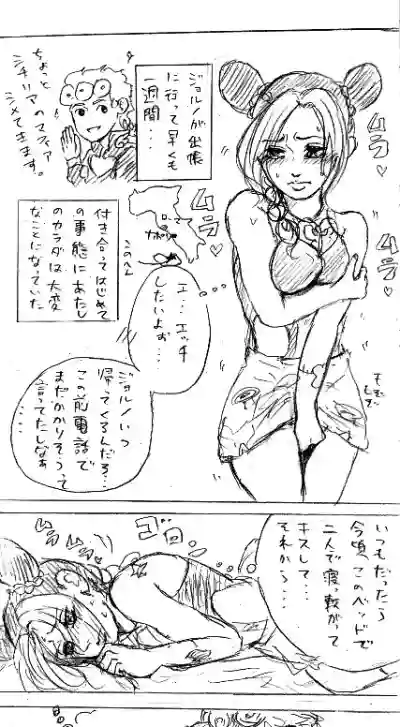 ジョルノが出張
に行って早くも
一週間・・・
ちょっと
シチリアのマフィア
シメてきます。
ムラ
ムラ
ムラ
ムラ
付き合ってはじめて
の事態にあたし
のカラダは大変
なことになっていた
ローマ
ナポリ
このへん
エ・・・エッチ
したいよぉ・・・
もじ
もじ
ジョルノいつ
帰ってくるんだろ・・・
この前電話で
まだかかりそうって
言ってたしなぁ
・・・・
いつもだったら
今頃このベッドで
二人で寝っ転がって
キスして・・・
それから・・・
ゴロ
ムラ
ムラ